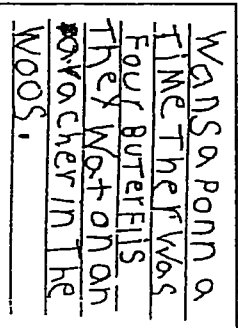 WanSaPonna
TIMeTherWas
FouR BUTerFlIS
TheY Wat on an
vacherIn The
WOOS.